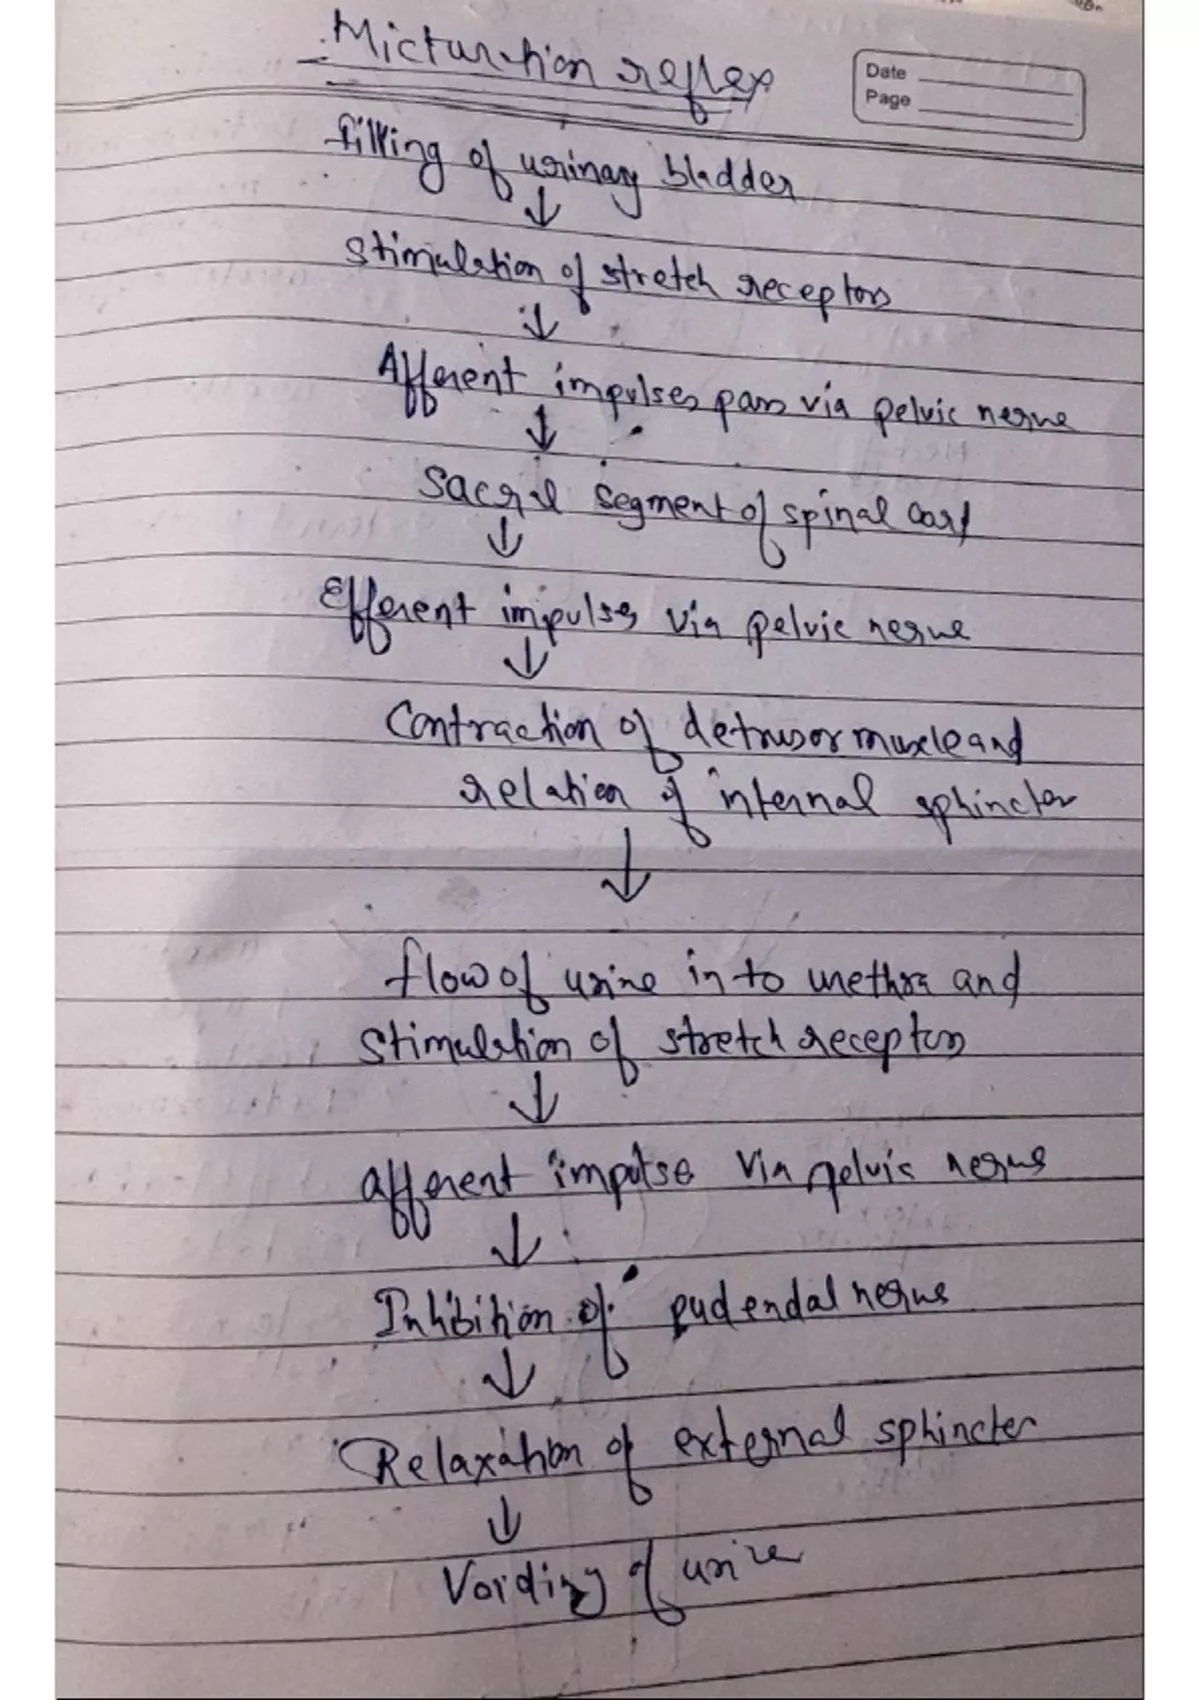 Micturition reflex
Date
Page
filling of urinary bladder
↓
Stimulation of stretch receptors
↓
Afferent impulses pass via pelvic nerve
↓
Sacral segment of spinal cord
↓
Efferent impulses via pelvic nerve
↓
Contraction of detrusor muscle and
relation of internal sphincter
↓
flow of urine in to urethra and
Stimulation of stretch receptors
↓
afferent impulse via pelvic nerve
↓
Inhibition of pudendal nerve
↓
Relaxation of external sphincter
↓
Voiding of urine